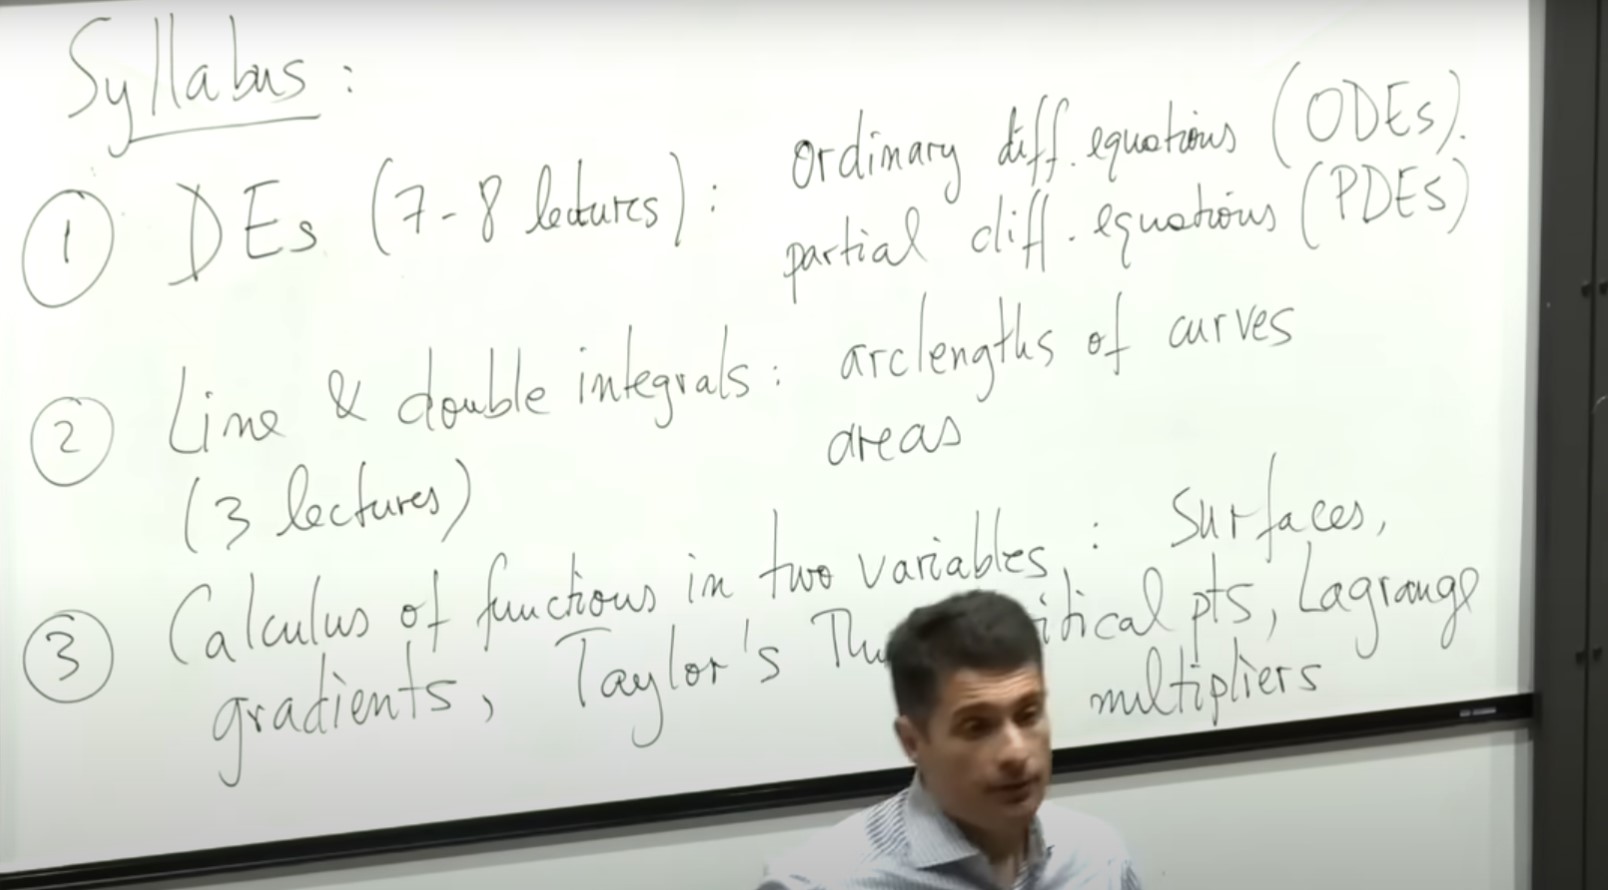 Syllabus:
① DEs (7-8 lectures): ordinary diff. equations (ODEs).
partial diff. equations (PDEs)
② Line & double integrals: arclengths of curves
areas
(3 lectures)
③ Calculus of functions in two variables: Surfaces,
gradients, Taylor's pts, Lagrange
multipliers